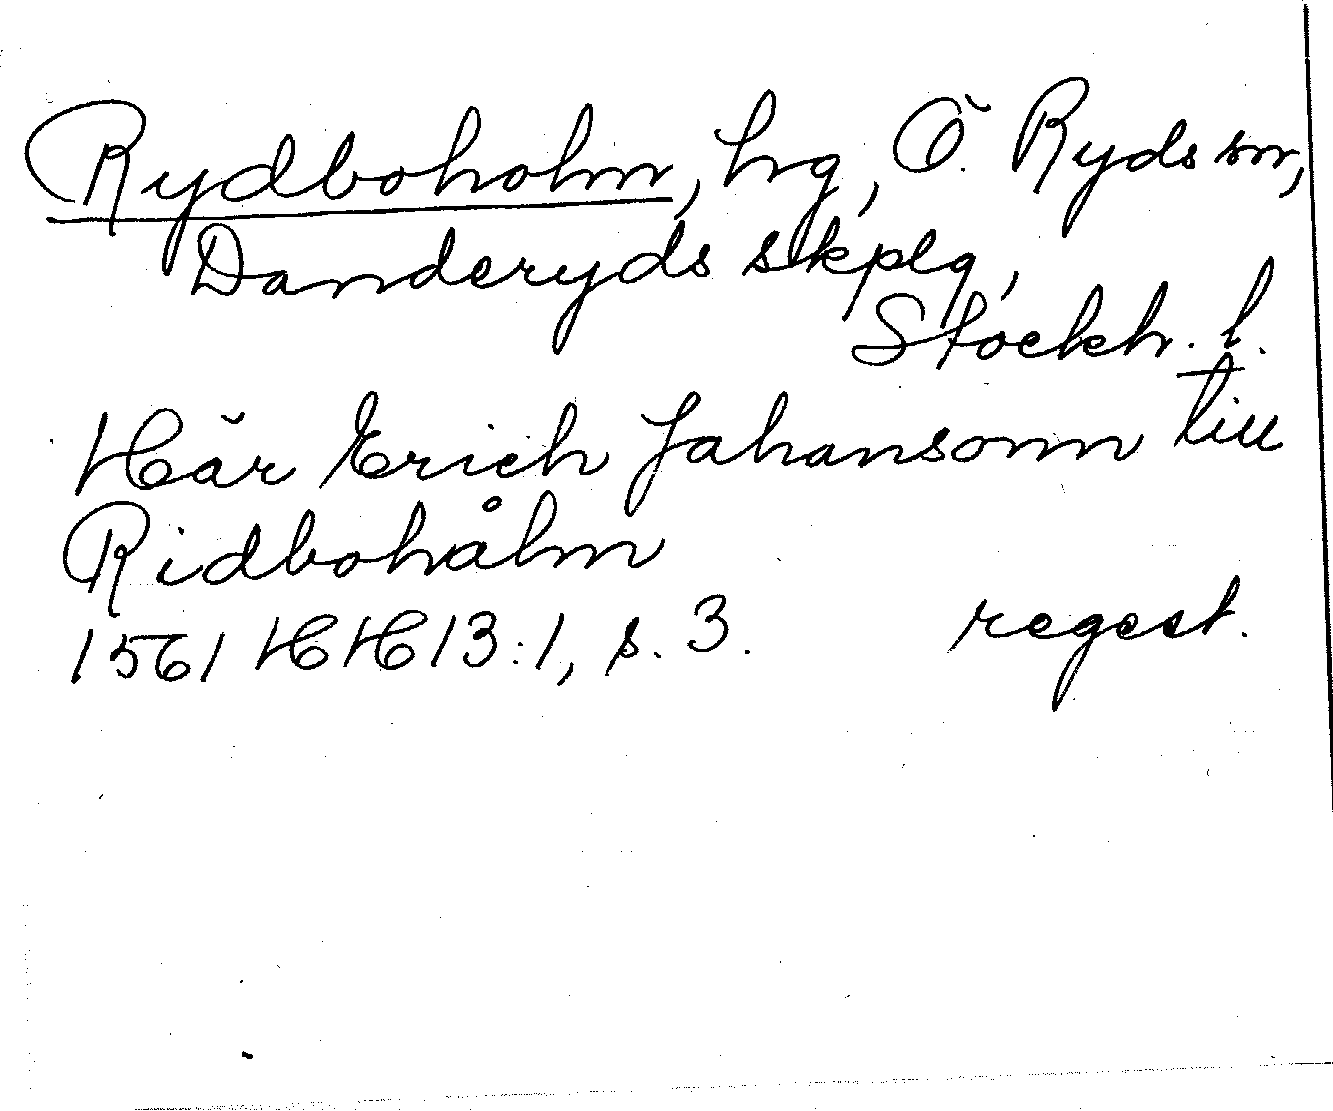 Rydboholm, hg, Ö. Ryds sn,
Danderyds skplg,
Stockh. l.
Här Erich Jahansonn till
Ridbohålm
1561 HH 13:1, s. 3. regest.